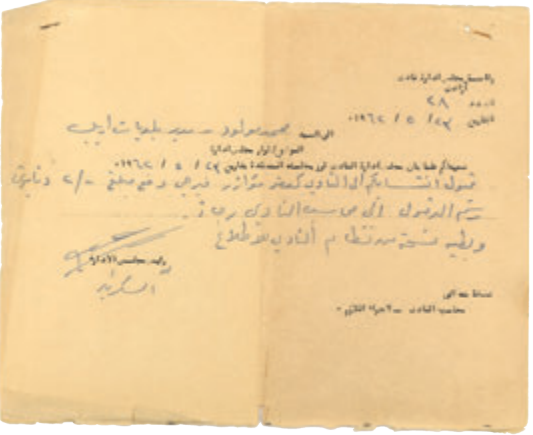 رئاسة مجلس ادارة نادي
العدد ٢٨
التاريخ ٢٣ / ٥ / ١٩٦٢
الى السيد محمد مولود - مدير بلديات اربيل
الموضوع / قرار مجلس ادارة
نحيطكم علما بان مجلس ادارة النادي قرر بجلسته المنعقدة بتاريخ ٢٣ / ٥ / ١٩٦٢
قبول انتسابكم الى النادي كعضو مؤازر فيرجى دفع مبلغ -/٢ دنانير
رسم الدخول الى محاسب النادي
وبطيه نسخة من نظام النادي للاطلاع
رئيس مجلس الادارة
السكرتير
نسخة منه الى
محاسب النادي - لاجراء اللازم